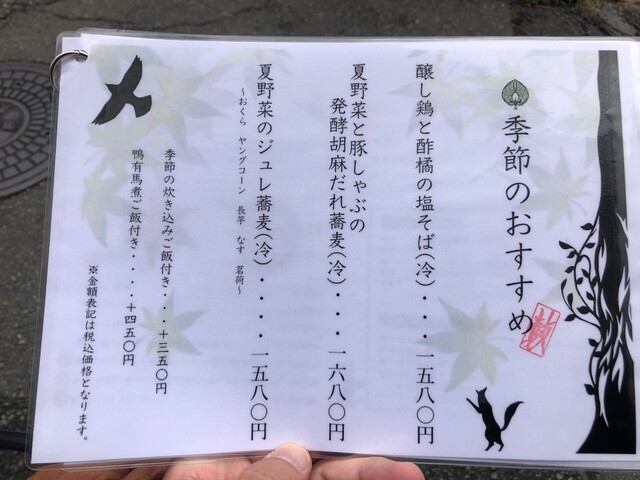 季節のおすすめ
醸し鶏と酢橘の塩そば(冷)・・・一五八〇円
夏野菜と豚しゃぶの
発酵胡麻だれ蕎麦(冷)・・・一六八〇円
夏野菜のジュレ蕎麦(冷)・・・・一五八〇円
~おくら ヤングコーン 長芋 なす 茗荷~
季節の炊き込みご飯付き・・・+三五〇円
鴨有馬煮ご飯付き・・・・+四五〇円
※金額表記は税込価格となります。